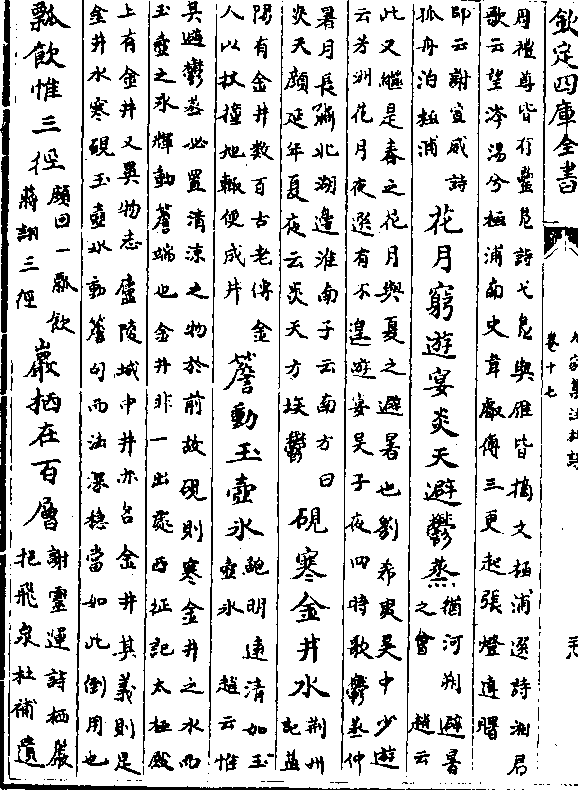 欽定四庫全書
卷十七
周禮尊皆有罍鳧詩弋鳧與雁皆摘文極浦選詩湘君
歌云望涔陽兮極浦南史韋叡傳三更起張燈達曙
即云謝宣城詩
孤舟泊極浦
花月窮遊宴炎天避鬱蒸
猶河朔避暑
之會 趙云
此又繼是春之花月與夏之避暑也劉希夷吴中少遊
云芳洲花月夜選有不遑遊宴吴子夜四時歌鬱蒸仲
暑月長嘯北湖邊淮南子云南方曰
炎天顔延年夏夜云炎天方埃鬱
硯寒金井水
荆州
記益
陽有金井數百古老傳金
人以杖撞地輒便成井
簷動玉壺氷
鮑明遠清如玉
壺氷 趙云惟
其避鬱蒸必置清凉之物於前故硯則寒金井之水而
玉壺之氷輝動簷端也金井非一出處西征記太極殿
上有金井又異物志廬陵城中井亦名金井其義則是
金井水寒硯玉壺氷動簷句而法深穩當如此倒用也
瓢飲惟三徑
顔回一瓢飲
蔣詡三徑
巖栖在百層
謝靈運詩栖巖
挹飛泉杜補遺